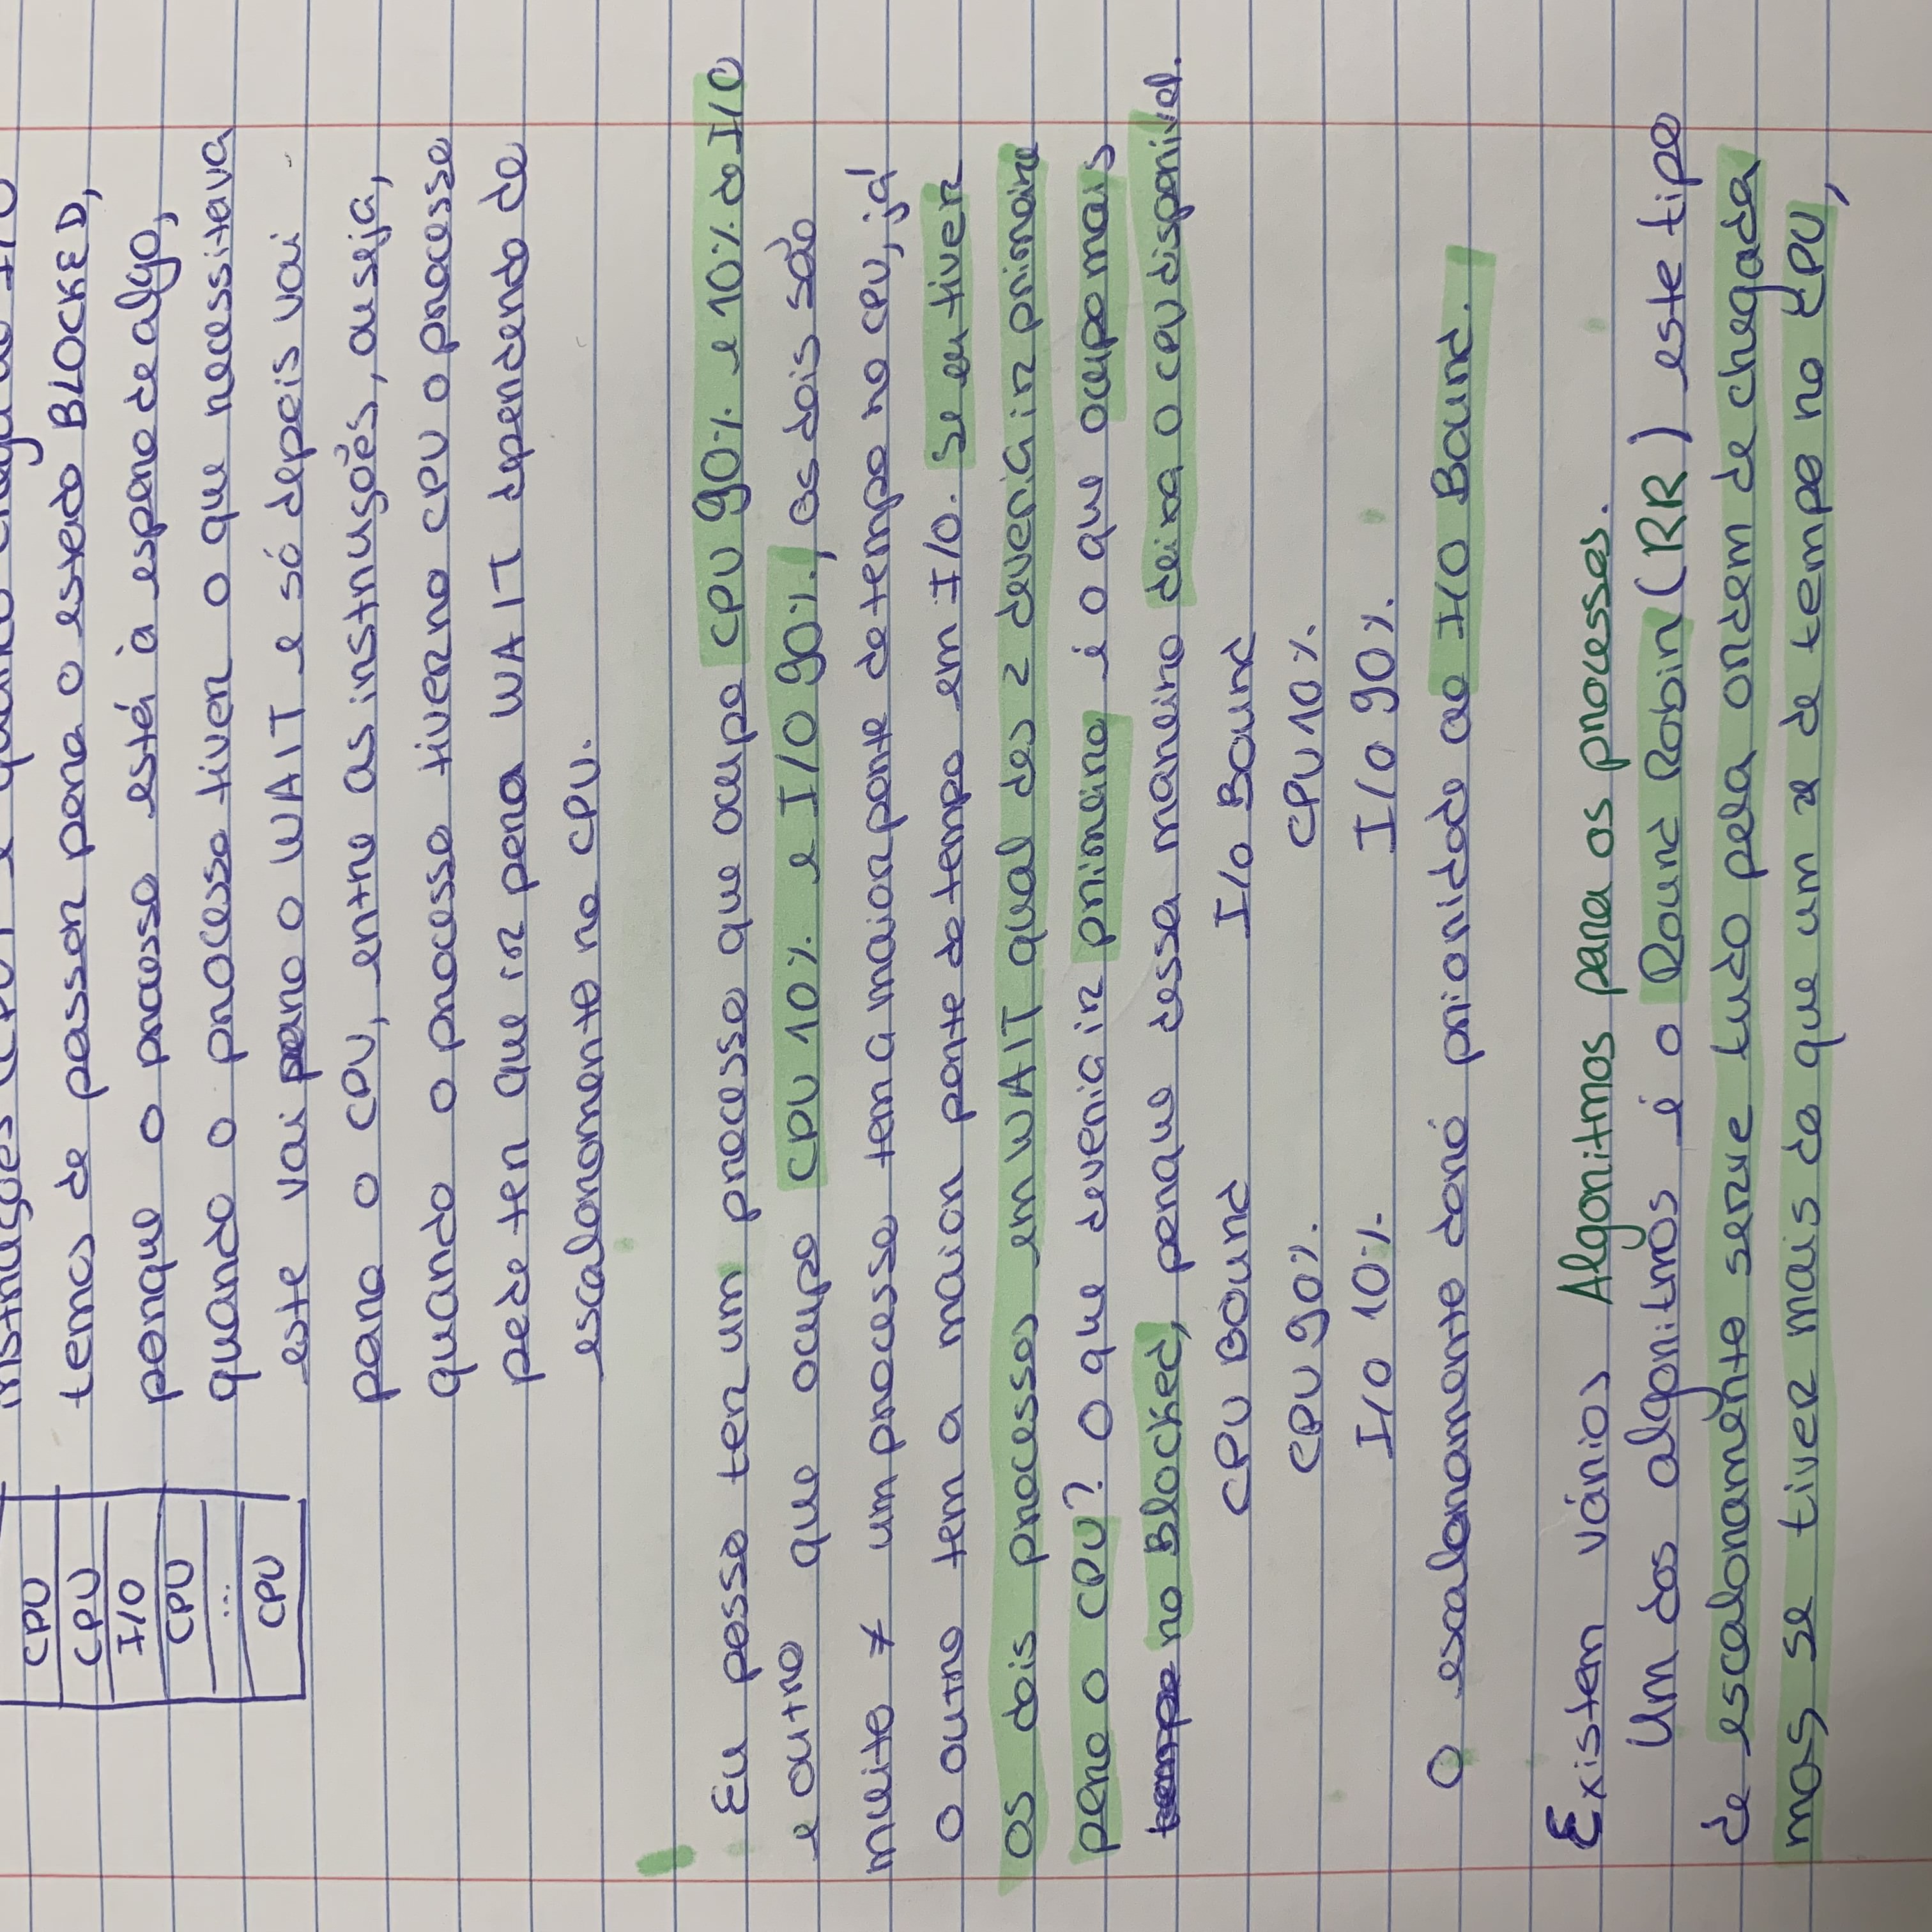 instruções (CPU) e quando chega ao I/O
CPU
CPU
I/O
CPU
...
CPU
temos de passar para o estado BLOCKED,
porque o processo está à espera de algo,
quando o processo tiver o que necessitava
este vai para o WAIT e só depois vai
para o CPU, entre as instruções, ou seja,
quando o processo tiver no CPU o processo
pode ter que ir para WAIT dependendo do
escalonamento no CPU.
Eu posso ter um processo que ocupa CPU 90% e 10% do I/O
e outro que ocupa CPU 10% e I/O 90%, os dois são
muito ≠ um processo tem a maior parte do tempo no CPU, já
o outro tem a maior parte do tempo em I/O. Se eu tiver
os dois processos em WAIT qual dos 2 deveria ir primeiro
para o CPU? O que deveria ir primeiro é o que ocupa mais
tempo no Blocked, porque dessa maneira deixa o CPU disponível.
CPU Bound I/O Bound
CPU 90% CPU 10%
I/O 10% I/O 90%
O escalonamento dará prioridade ao I/O Bound.
Existem vários Algoritmos para os processos.
Um dos algoritmos é o Round Robin (RR) este tipo
de escalonamento serve tudo pela ordem de chegada
mas se tiver mais do que um x de tempo no CPU,